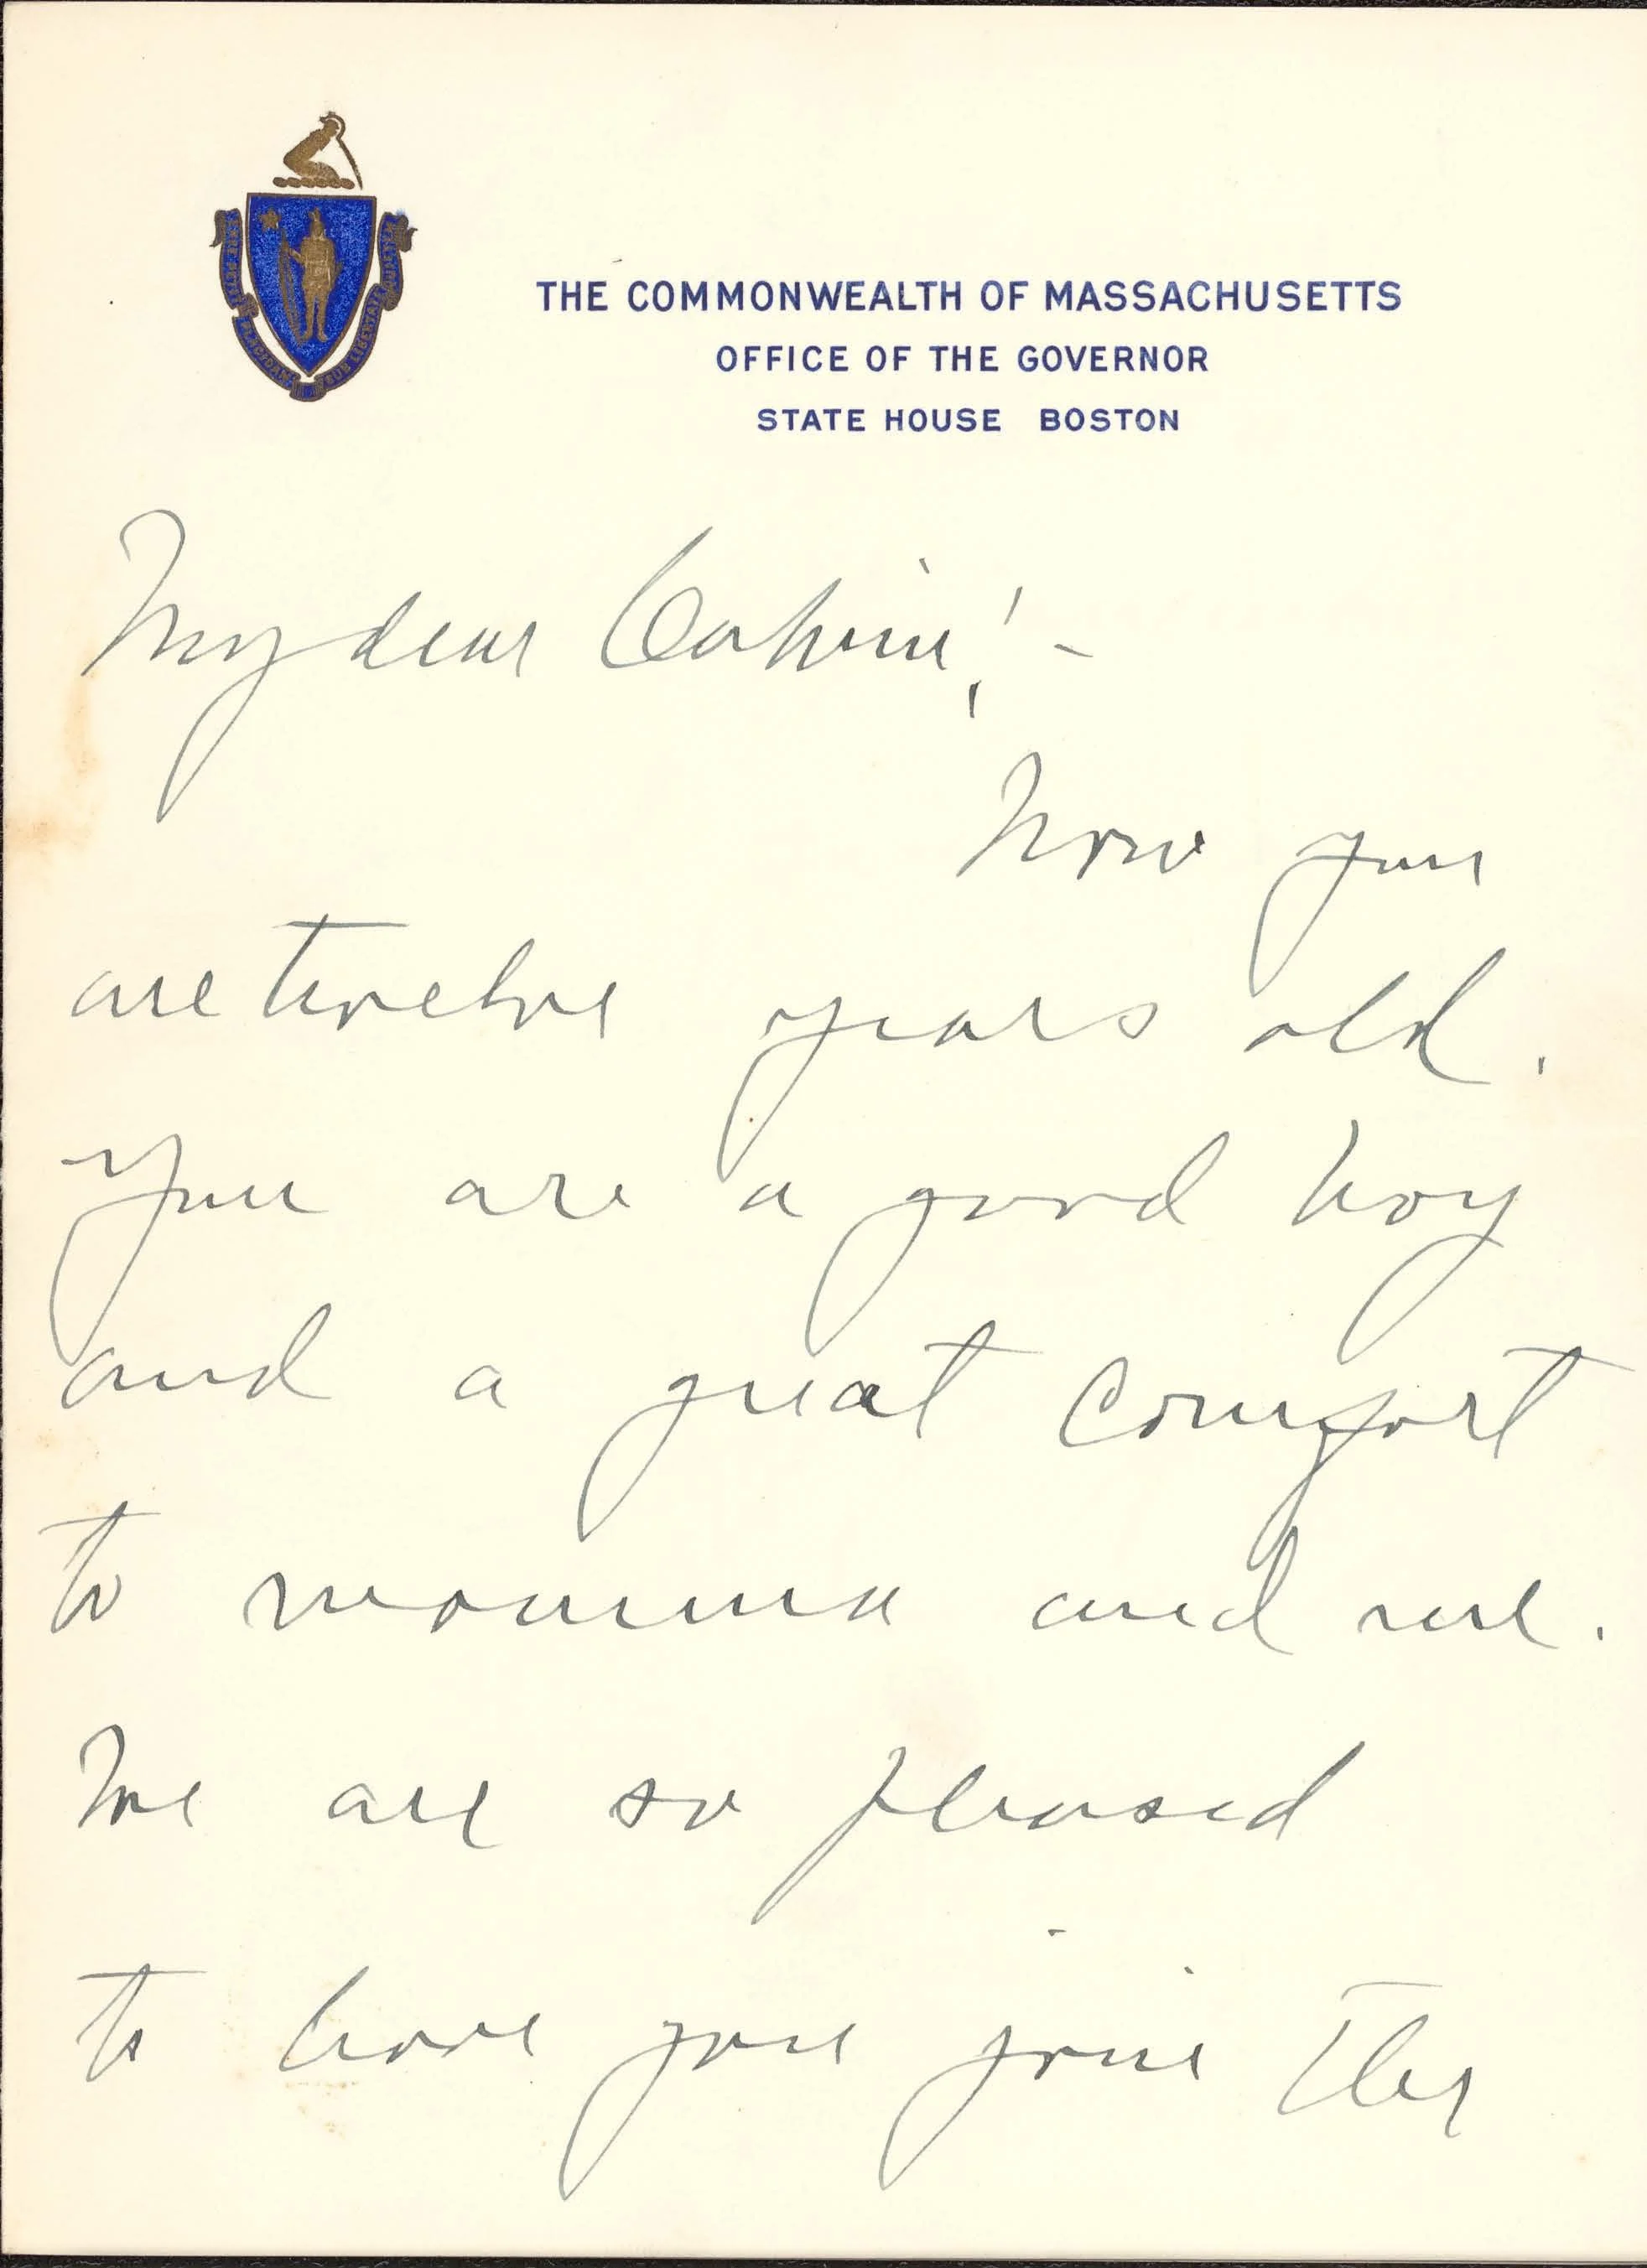 THE COMMONWEALTH OF MASSACHUSETTS
OFFICE OF THE GOVERNOR
STATE HOUSE BOSTON
My dear Calvin! -
Now you
are twelve years old.
You are a good boy
and a great comfort
to momma and me.
We are so pleased
to have you join the